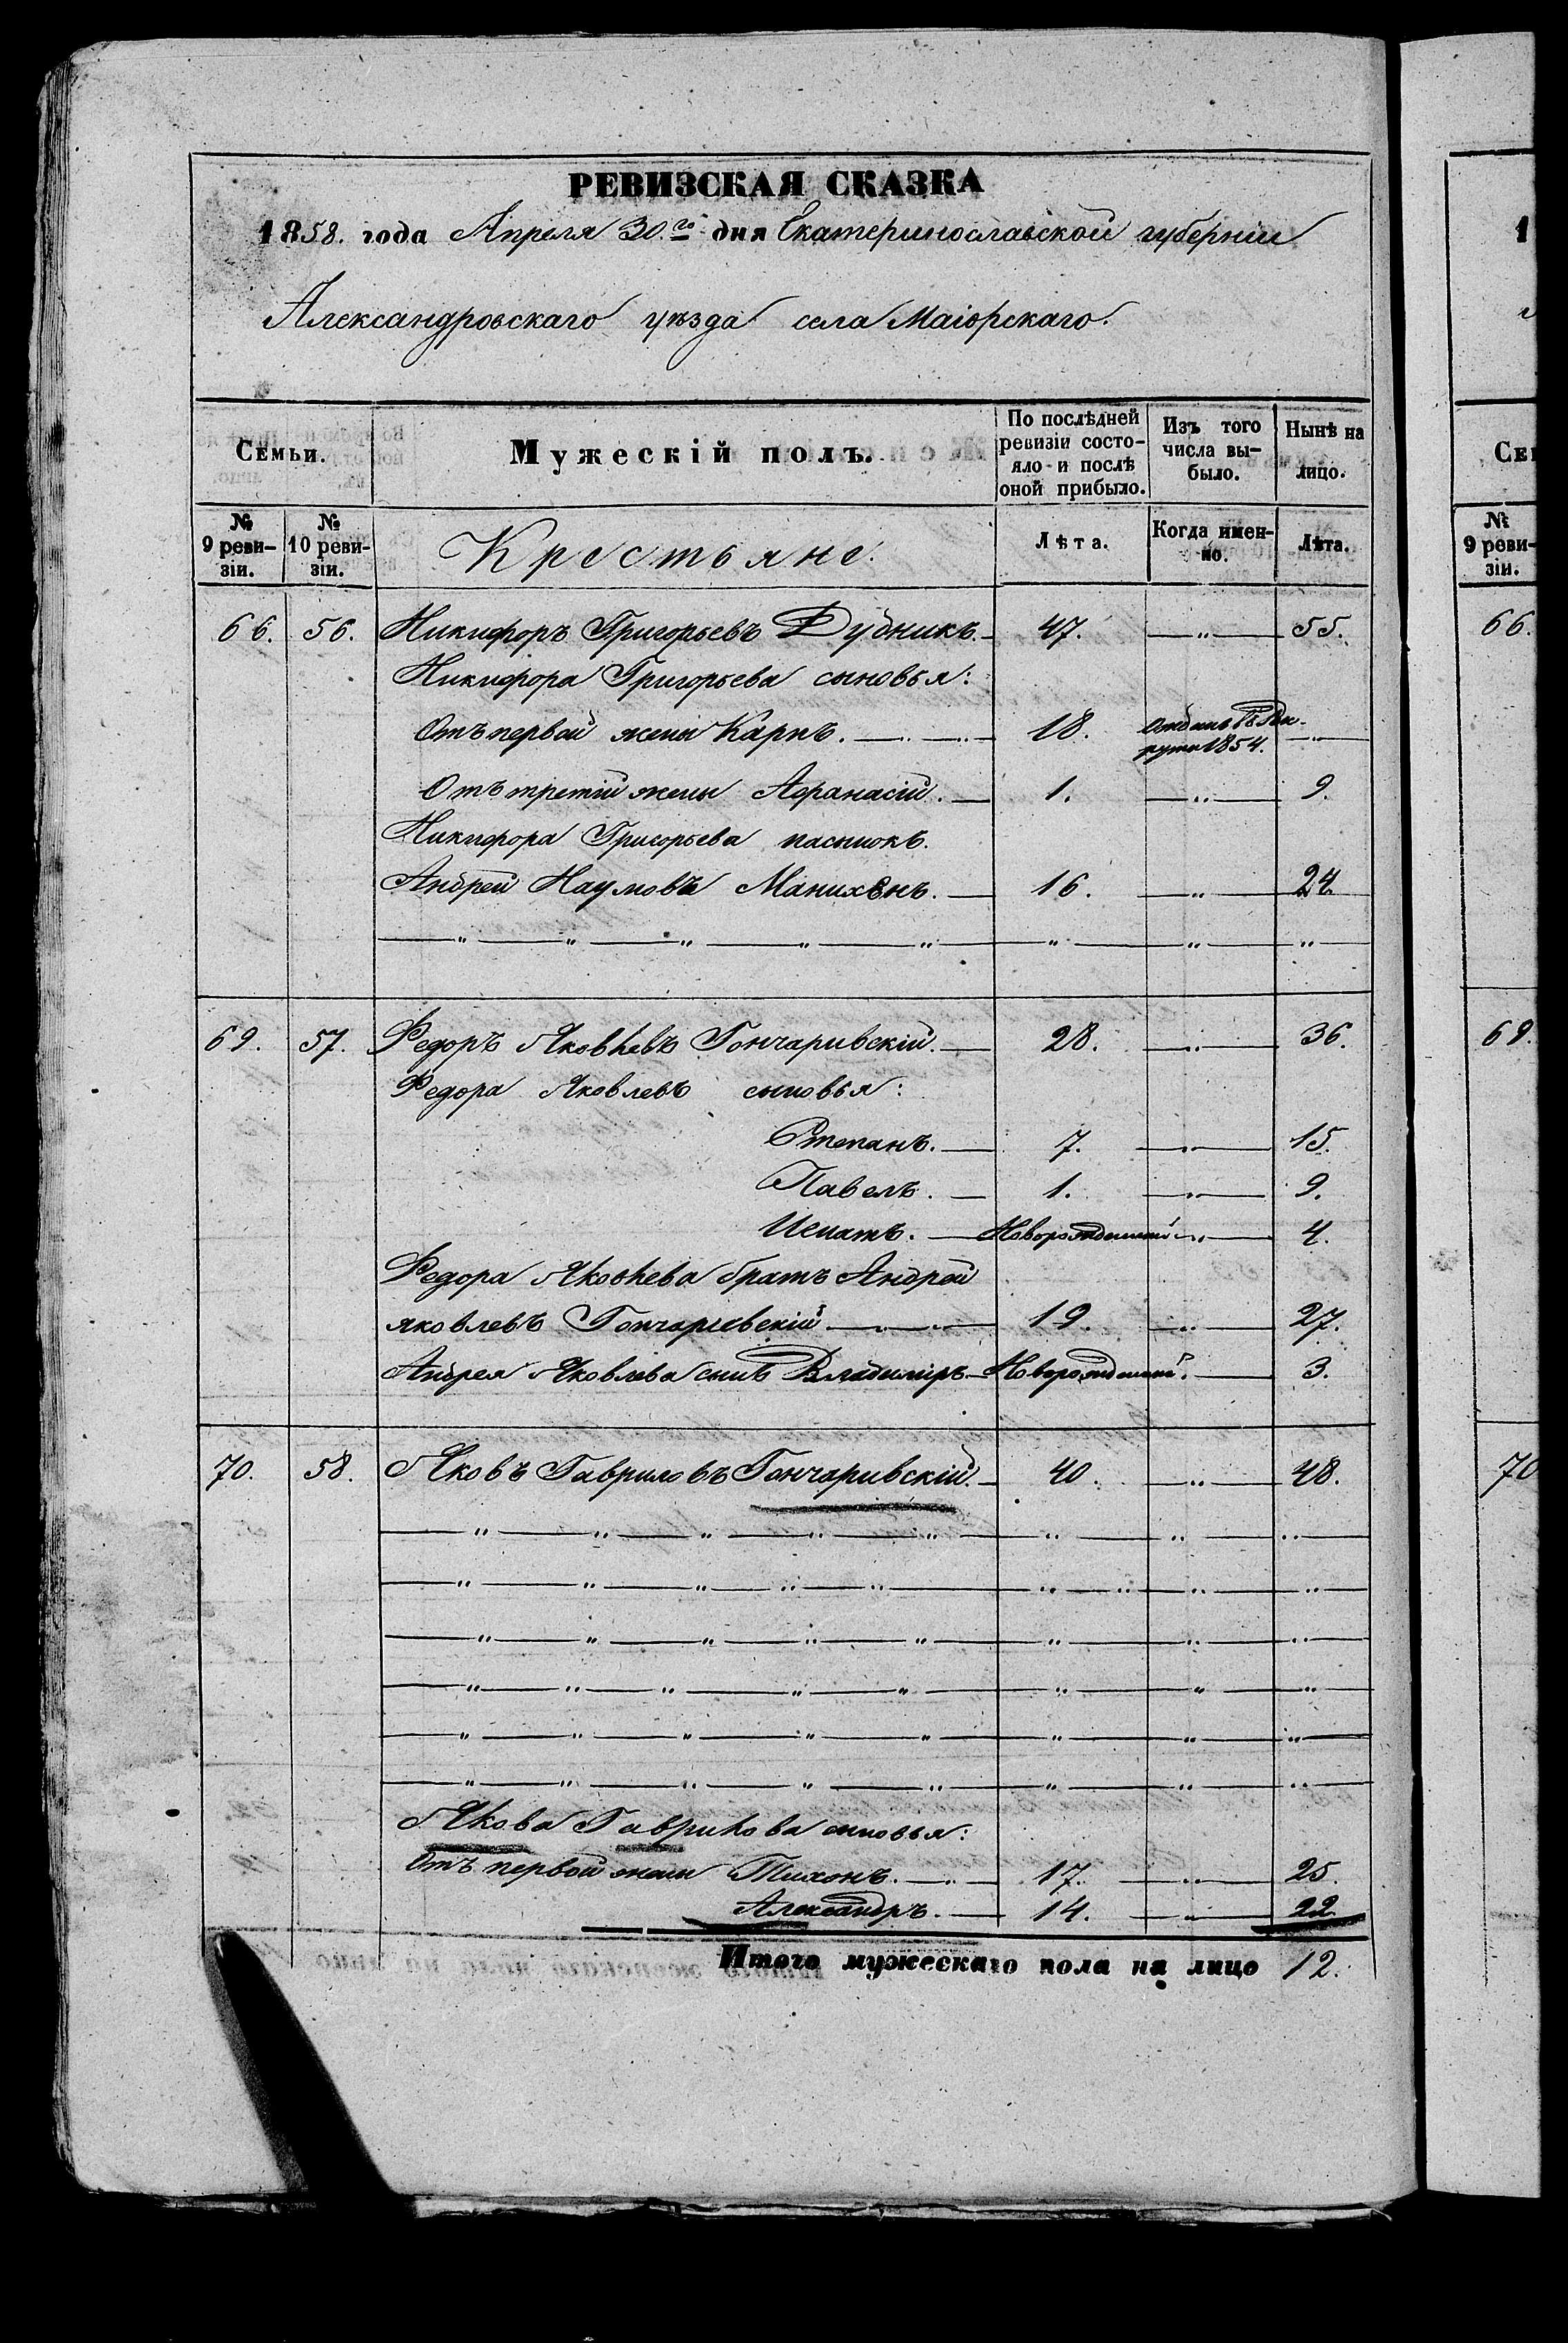 РЕВИЗСКАЯ СКАЗКА
1858. года Апреля 30.го дня Екатеринославской губерніи
Александровскаго уѣзда села Маіорскаго.
Семьи.
Мужескій полъ.
По послѣдней ревизіи состояло и послѣ оной прибыло.
Изъ того числа выбыло.
Нынѣ на лицо.
№ 9 ревизіи.
№ 10 ревизіи.
Крестьяне.
Лѣта.
Когда именно.
Лѣта.
66. 56. Никифоръ Григорьевъ Дудникъ. 47. — „ — 55.
Никифора Григорьева сыновья:
Отъ первой жены Карпъ. — „ — „ — 18. Отданъ въ Рекруты 1854. — „
Отъ третій жены Афанасій. — 1. — „ — 9.
Никифора Григорьева пасынокъ.
Андрей Наумовъ — 16. — „ — 24
— „ — „ — „ — „ — „ — „ — „ — „ —
69. 57. Федоръ Яковлевъ Гончаривскій. — 28. — „ — 36.
Федора Яковлевъ сыновья:
Степанъ. — 7. — „ — 15.
Павелъ. — 1. — „ — 9.
Игнатъ. — Новорожденный — „ — 4.
Федора Яковлева братъ Андрей
яковлевъ Гончаривскій — „ — „ — 19. — „ — 27.
Андрея Яковлева сынъ Владимiръ — Новорожденный. — 3.
70. 58. Яковъ Гавриловъ Гончаривскій. — 40. — „ — 48.
— „ — „ — „ — „ — „ — „ — „ — „ —
— „ — „ — „ — „ — „ — „ — „ — „ — „ —
— „ — „ — „ — „ — „ — „ — „ — „ —
— „ — „ — „ — „ — „ — „ — „ — „ —
— „ — „ — „ — „ — „ — „ — „ — „ —
— „ — „ — „ — „ — „ — „ — „ — „ —
Якова Гаврилова сыновья:
Отъ первой жены Тихонъ. — „ — 17. — „ — 25.
Александръ. — 14. — „ — 22
Итого мужескаго пола на лицо 12.
1
Сем
№ 9 ревизіи.
66.
69.
70